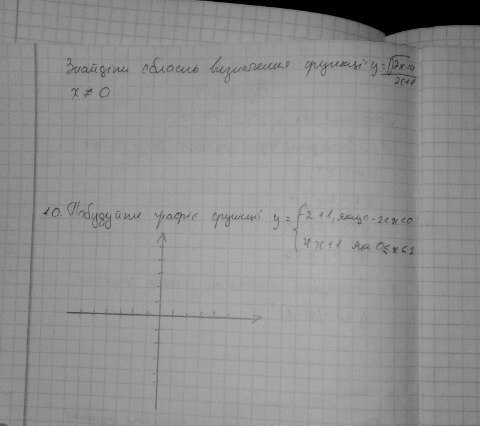 Знайдіть область визначення функції y = √2x-4 / 2x+1
x ≠ 0
10. Побудуйте графік функції y = { 2+1, якщо -2<x<0
4x+1 як 0≤x<2